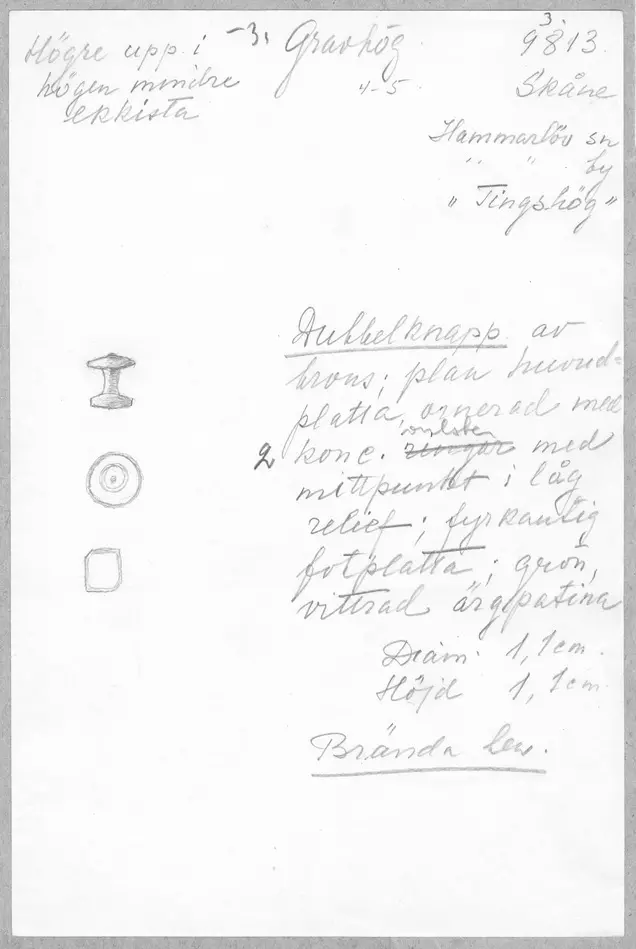 Högre upp i
högen mindre
ekkista
-3. Gravhög
4-5
3.
9813.
Skåne
Hammarlöv sn
" " by
"Tingshög"
Dubbelknapp av
brons; plan huvud=
platta, ornerad med
vulster
2 konc. ringar med
mittpunkt i låg
relief; fyrkantig
fotplatta; grön,
vittrad ärgpatina
Diam. 1,1 cm.
Höjd 1,1 cm.
Brända ben.